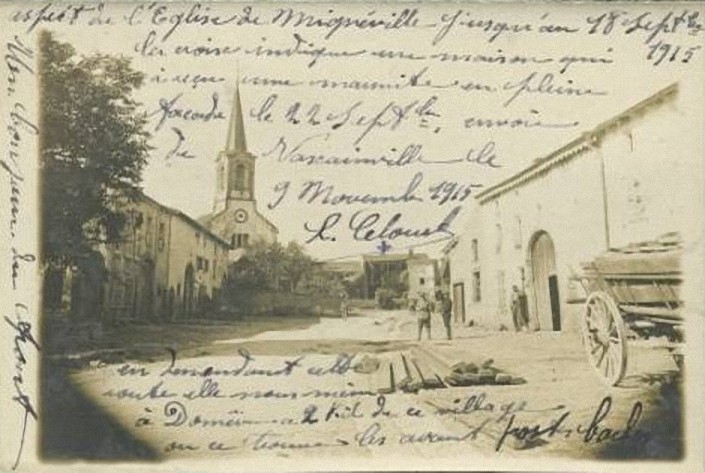 aspect de l'Eglise de Mignéville jusqu'au 18 Septbre 1915
la croix indique une maison qui
a reçu une marmite en pleine
façade le 22 Septbre, envoie
de Vascainville le
9 Novembre 1915
en demendant cette
route elle nous mène
à Domèvre a 2 K de ce village
ou ce trouve les avant postes boches
Mon bonjour du front